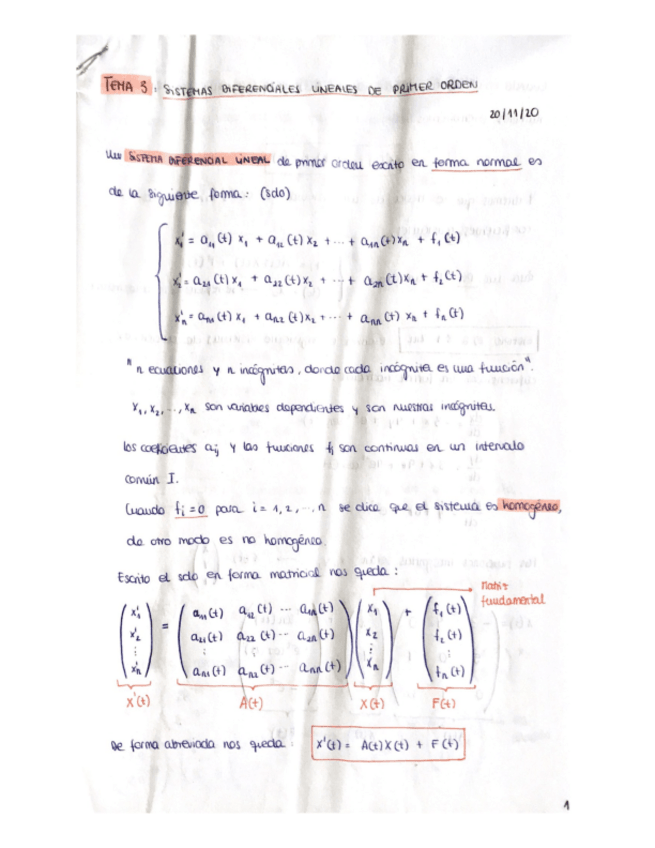 TEMA 3: SISTEMAS DIFERENCIALES LINEALES DE PRIMER ORDEN
20/11/20
Un SISTEMA DIFERENCIAL LINEAL de primer orden escrito en forma normal es
de la siguiente forma: (sdo)
x₁' = a₁₁(t) x₁ + a₁₂(t) x₂ + ... + a₁n(t) xn + f₁(t)
x₂' = a₂₁(t) x₁ + a₂₂(t) x₂ + ... + a₂n(t) xn + f₂(t)
xn' = an₁(t) x₁ + an₂(t) x₂ + ... + ann(t) xn + fn(t)
"n ecuaciones y n incógnitas, donde cada incógnita es una función".
x₁, x₂, ..., xn son variables dependientes y son nuestras incógnitas.
Los coeficientes aij y las funciones fi son continuas en un intervalo
común I.
Cuando fi=0 para i = 1, 2, ..., n se dice que el sistema es homogéneo,
de otro modo es no homogéneo.
Escrito el sdo en forma matricial nos queda:
Matriz
fundamental
x₁' a₁₁(t) a₁₂(t) ... a₁n(t) x₁ + f₁(t)
x₂' = a₂₁(t) a₂₂(t) ... a₂n(t) x₂ f₂(t)
⋮ ⋮ ⋮ ⋮
xn' an₁(t) an₂(t) ... ann(t) xn fn(t)
X'(t) A(t) X(t) F(t)
De forma abreviada nos queda X'(t) = A(t)X(t) + F(t)
1